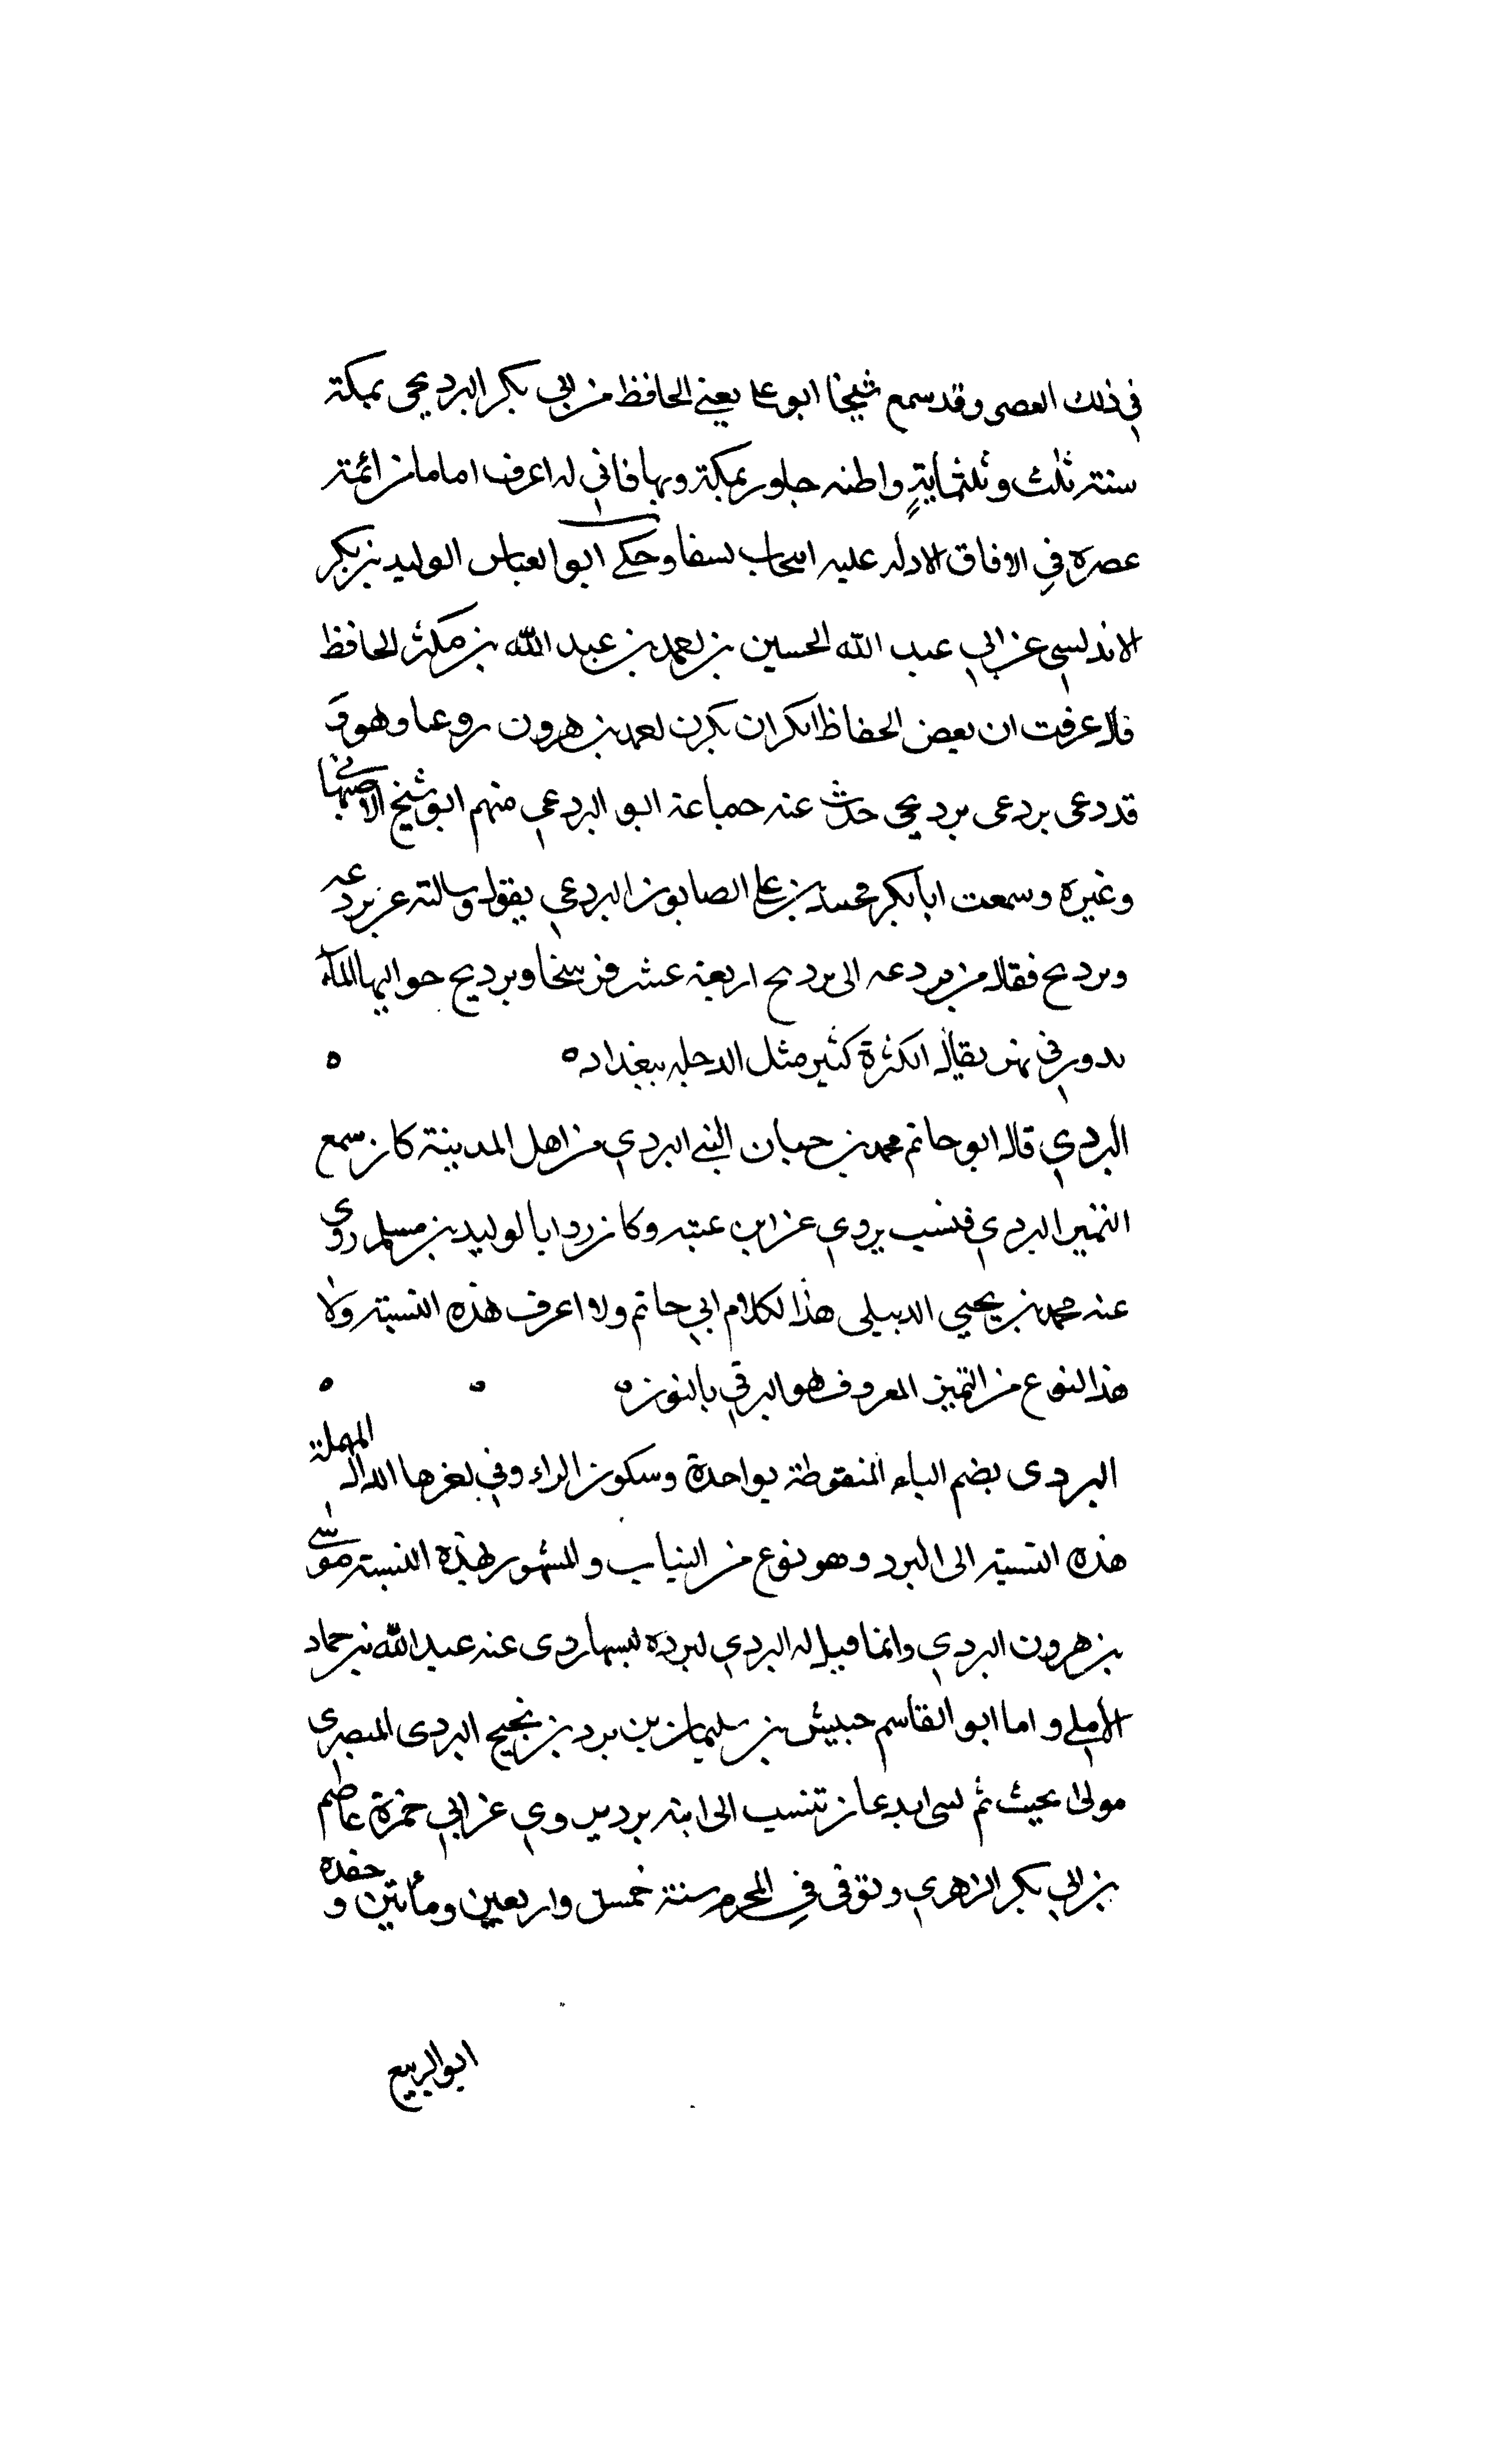 في ذلك العصر وقد سمع شيخنا ابو علي يعني الحافظ من ابي بكر البرديجي بمكة
سنة ثلث وثلثماية واظنه جاور بمكة وبها فاني لم اعرف اماما من ائمة
عصره في الافاق الا وله عليه وحكى ابو العباس الوليد بن بكر
الاندلسي عن ابي عبد الله الحسين بن احمد بن عبد الله بن الحافظ
قال عرفت ان بعض الحفاظ انكر ان يكون احمد بن هرون وهو
قد دعى بردعى برديجي حدث عنه جماعة ابو البردعي منهم ابو شيخ الاصبهاني
وغيره وسمعت ابا بكر محمد بن علي الصابون البردعي يقول وسالته عن بردعه
وبرديج فقال من بردعه الى برديج اربعة عشر فرسخا وبرديج حواليها الماء
يدور في نهر يقال له الكر كثير مثل الدجله ببغداد ه ه
البردي قال ابو حاتم محمد بن حبان البردي من اهل المدينة كان سمع
البردي فنسب يروي عن ابن عتبه وكان الوليد بن مسلم روى
عنه محمد بن يحيى الديبلي هذا لكلام ابي حاتم ولا اعرف هذه النسبة ولا
هذا لنوع من التمر المعروف هو البرني بالنون ه ه ه
البردى بضم الباء المنقوطة بواحدة وسكون الراء وفي اخرها الدال المهملة
هذه النسبة الى البرد وهو نوع من الثياب والمشهور بهذه النسبة موسى
بن هرون البردي وانما قيل له البردي لبرده لبسها روى عنه عبد الله بن حماد
الاملي واما ابو القاسم حبيش بن سليمان بن برد بن نجيح البردى المصرى
مولى تجيب ثم تنسب الى ابنه برد يروي عن ابي حمزة عاصم
بن ابي بكر الزهري وتوفى في المحرم سنة خمس واربعين ومائتين و حفده
ابو الربيع